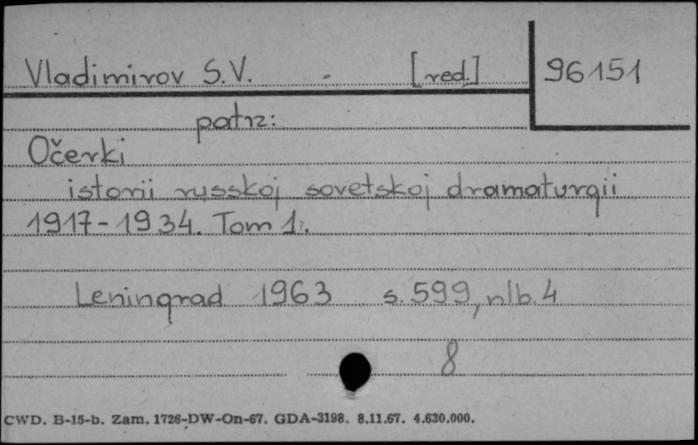 Vladimirov S.V. - [red.] 96151
patrz:
Očerki
istorii russkoj sovetskoj dramaturgii
1917-1934. Tom 1.
Leningrad 1963 s. 599, nlb. 4
8
CWD. B-15-b. Zam. 1726-DW-On-67. GDA-3198. 8.11.67. 4.630.000.